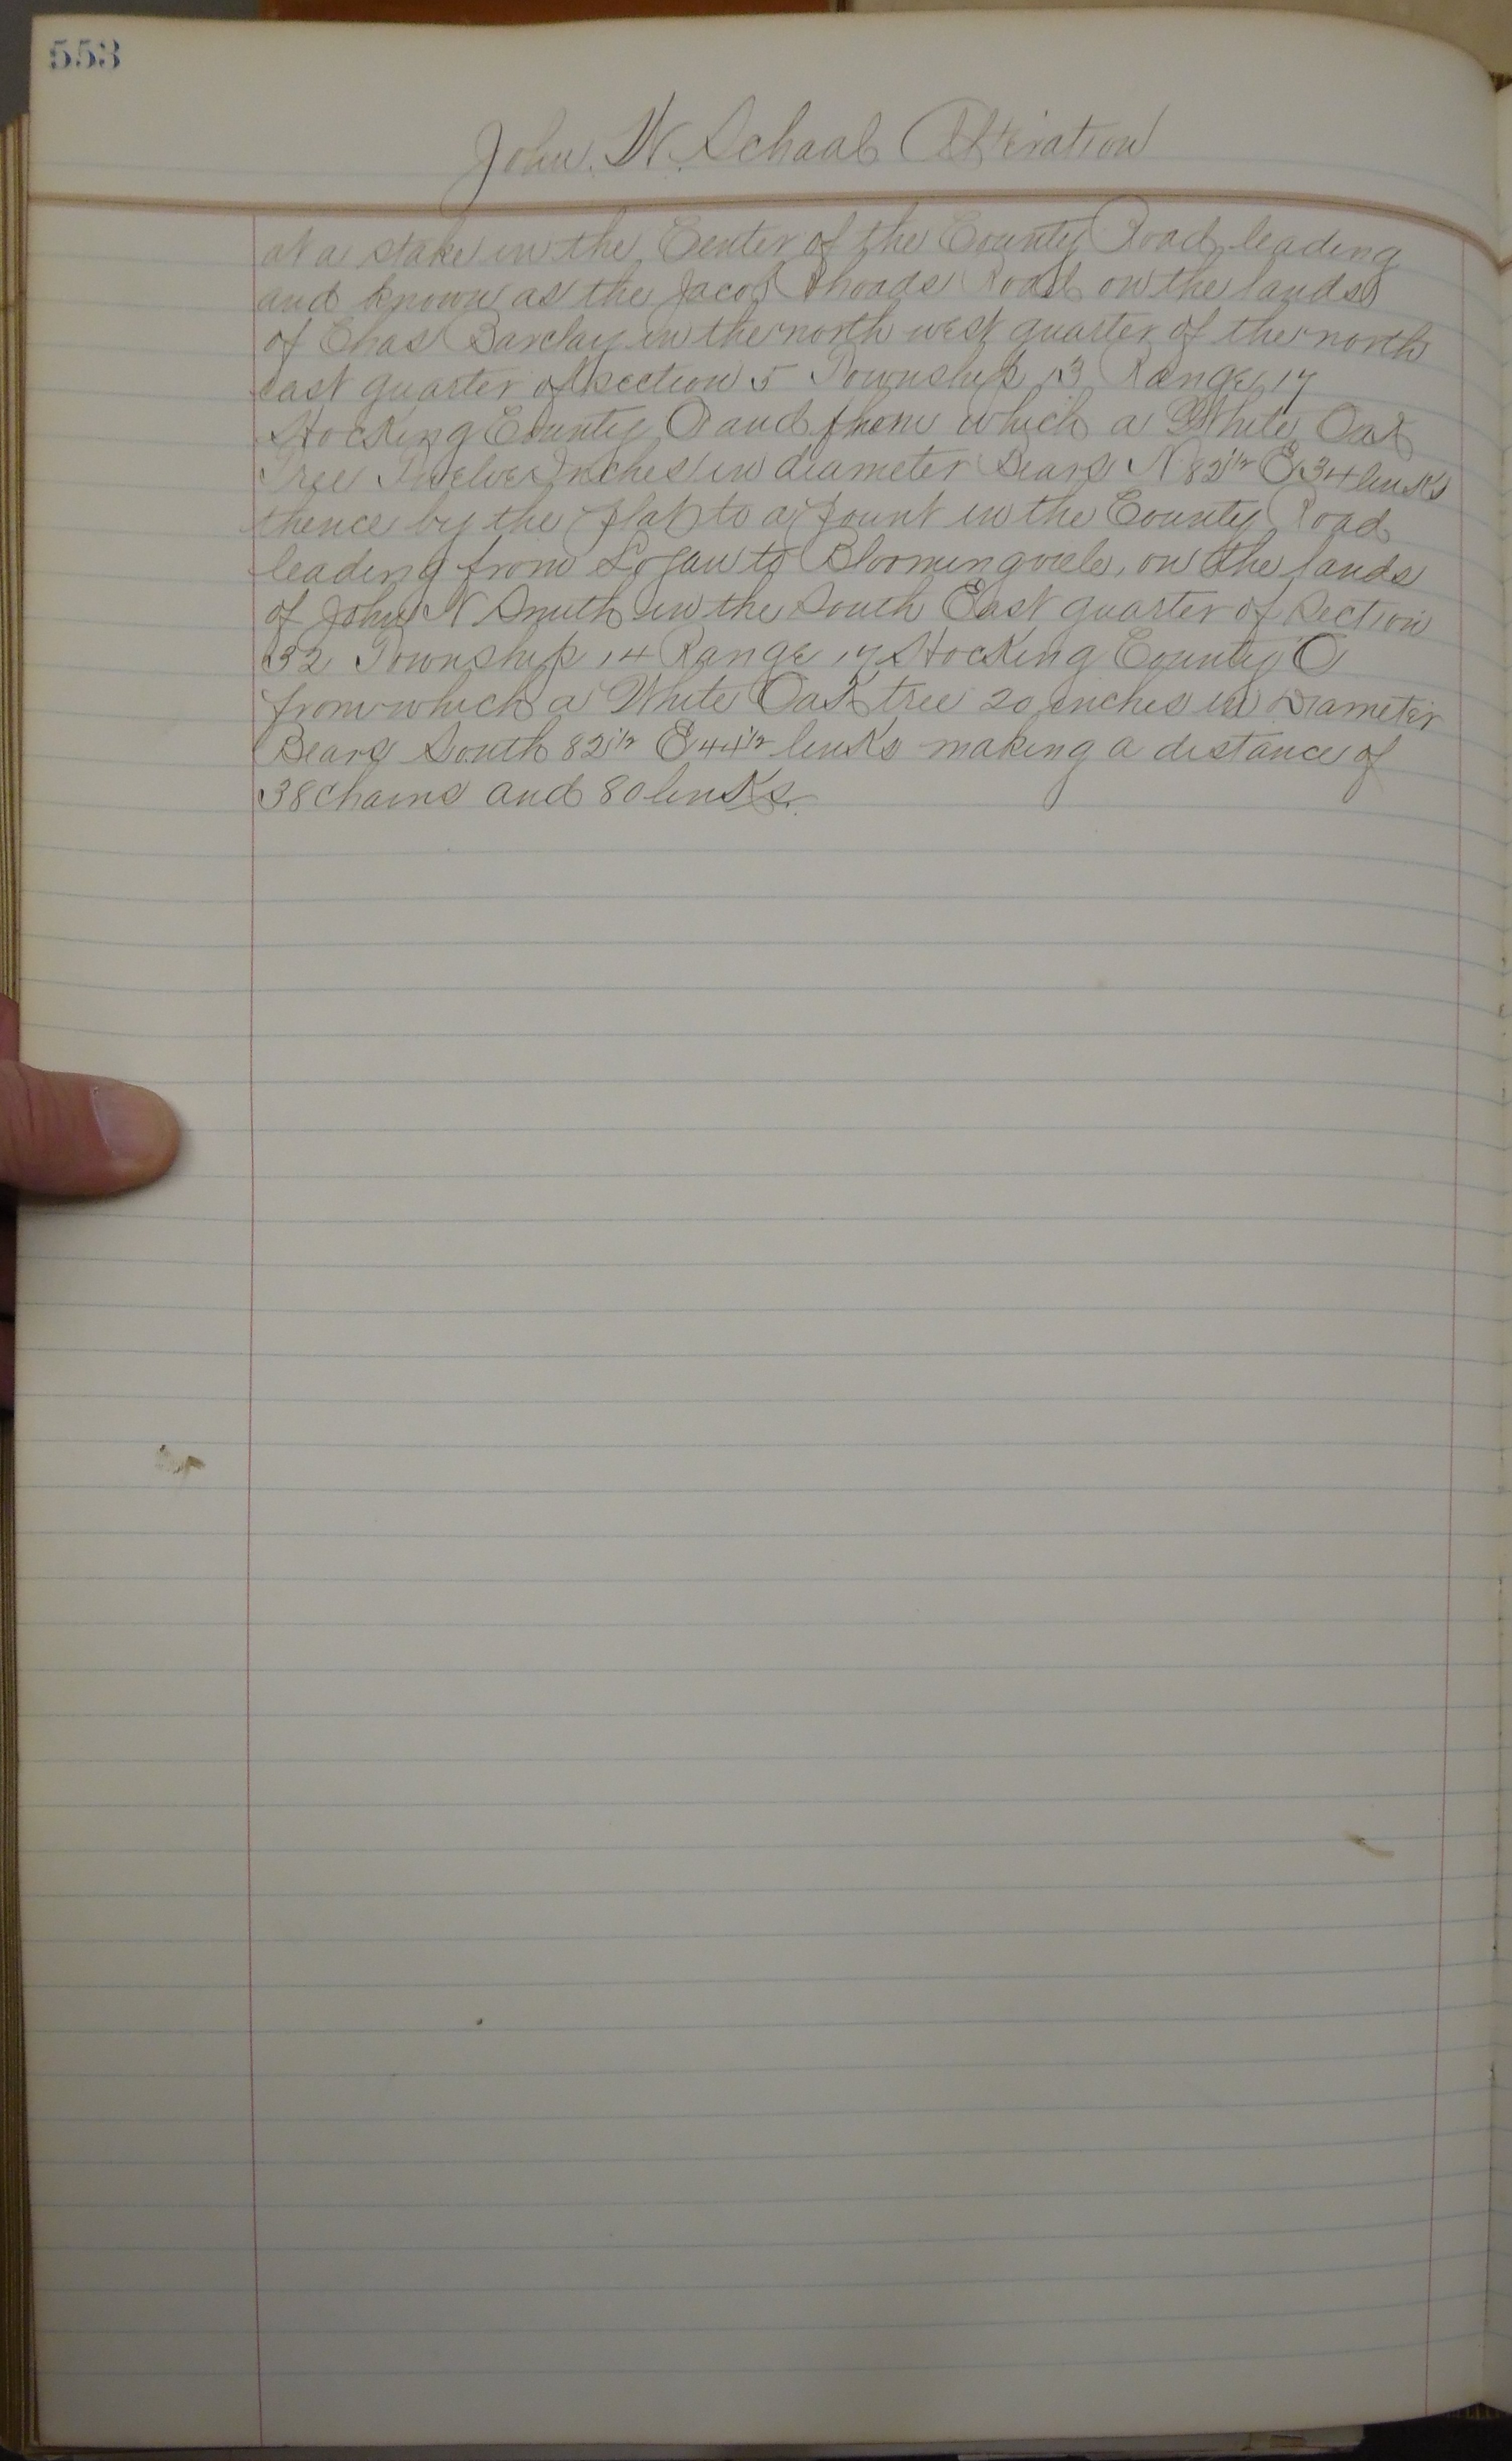 553
John. W. Schaal Alteration
at a stake in the Center of the County Road leading
and known as the Jacob Rhoads Road on the lands
of Chas Barclay in the north west quarter of the north
east quarter of section 5 Township 13 Range 17
Hocking County O and from which a White Oak
Tree Twelve Inches in diameter Bears N 82 1/2 E 34 links
thence by the plat to a point in the County Road
leading from Logan to Bloomingville, on the lands
of John N Smith in the South East quarter of Section
32 Township 14 Range 17 Hocking County O
from which a White Oak tree 20 inches in Diameter
Bears South 82 1/2 E 44 1/2 links making a distance of
38 chains and 80 links.